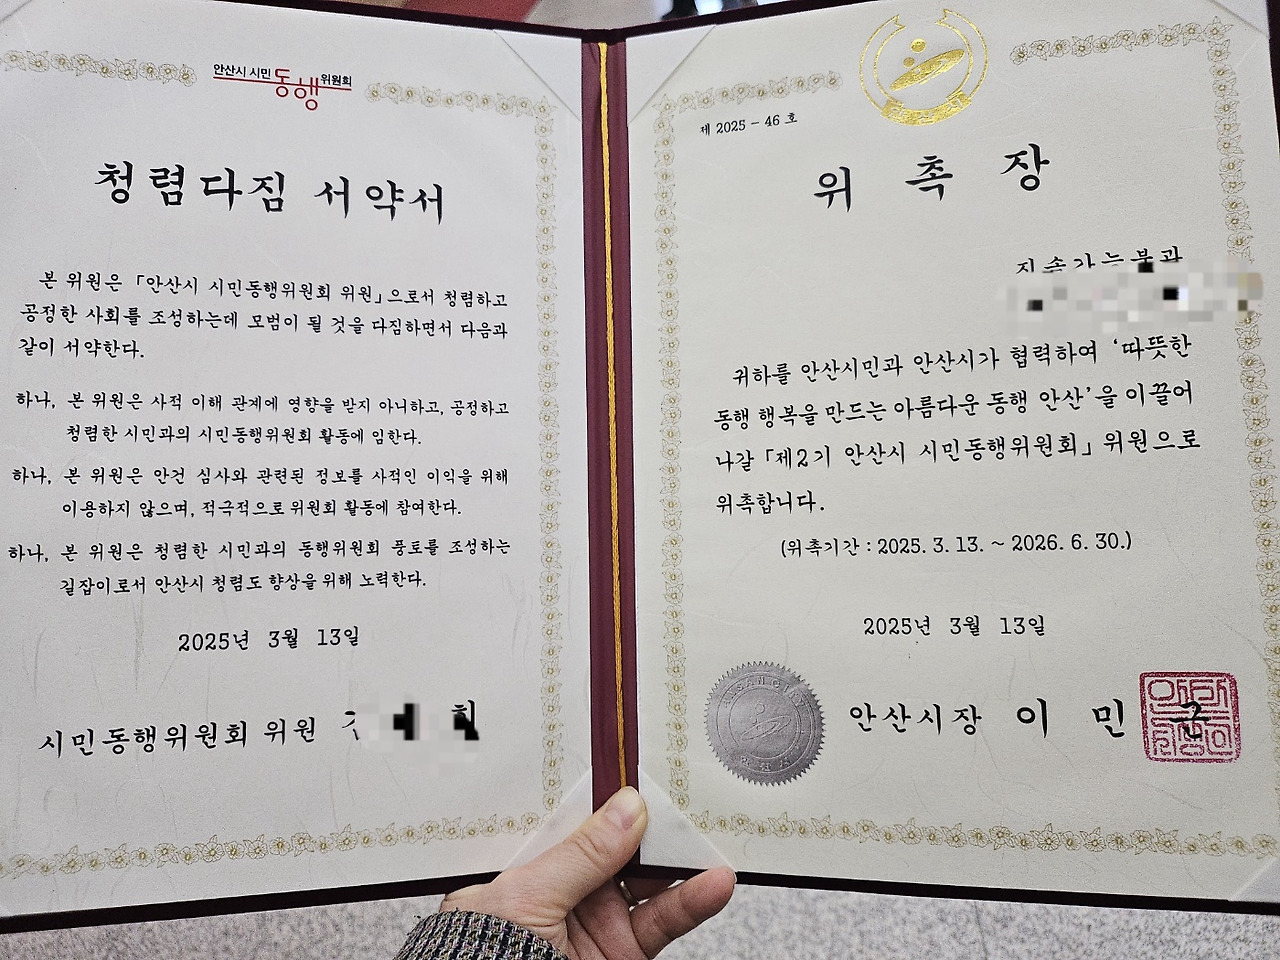 안산시 시민 동행 위원회
청렴다짐 서약서
본 위원은 「안산시 시민동행위원회 위원」으로서 청렴하고
공정한 사회를 조성하는데 모범이 될 것을 다짐하면서 다음과
같이 서약한다.
하나, 본 위원은 사적 이해 관계에 영향을 받지 아니하고, 공정하고
청렴한 시민과의 시민동행위원회 활동에 임한다.
하나, 본 위원은 안건 심사와 관련된 정보를 사적인 이익을 위해
이용하지 않으며, 적극적으로 위원회 활동에 참여한다.
하나, 본 위원은 청렴한 시민과의 동행위원회 풍토를 조성하는
길잡이로서 안산시 청렴도 향상을 위해 노력한다.
2025년 3월 13일
시민동행위원회 위원
제 2025 - 46 호
위 촉 장
지속가능분과
귀하를 안산시민과 안산시가 협력하여 ‘따뜻한
동행 행복을 만드는 아름다운 동행 안산’을 이끌어
나갈 「제2기 안산시 시민동행위원회」 위원으로
위촉합니다.
(위촉기간 : 2025. 3. 13. ~ 2026. 6. 30.)
2025년 3월 13일
안산시장 이 민 근